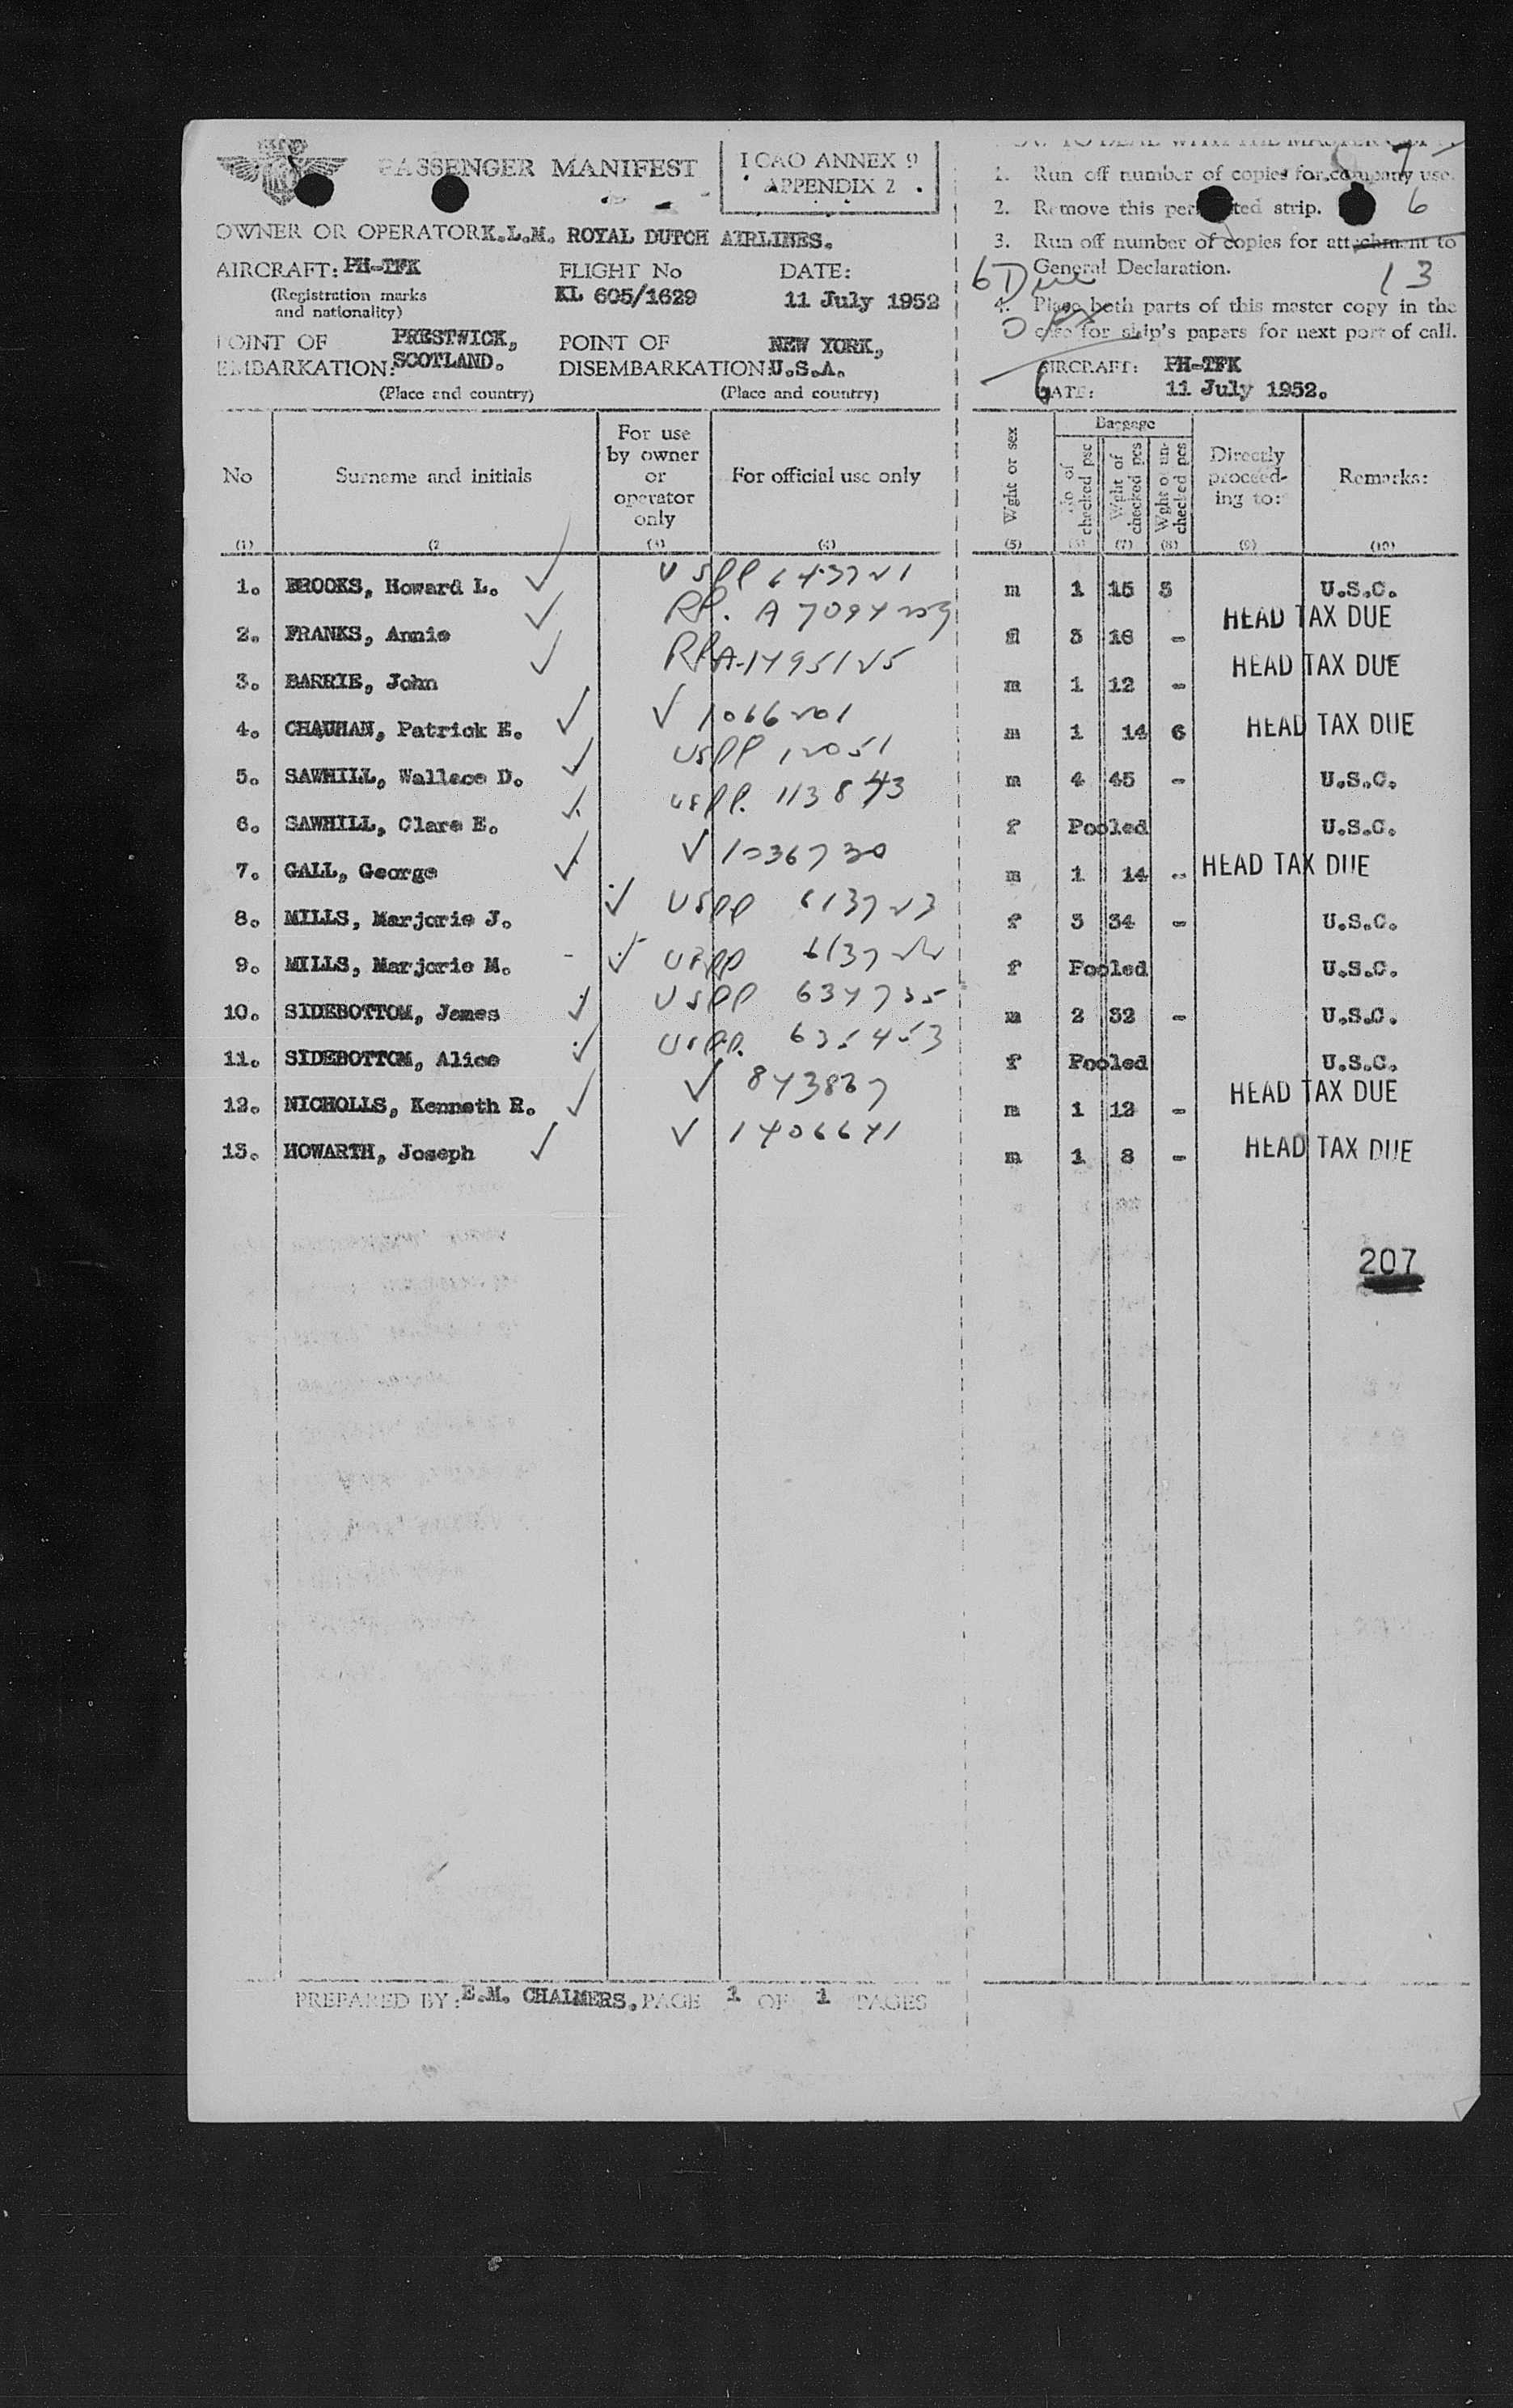 PASSENGER MANIFEST
ICAO ANNEX 9
APPENDIX 2
OWNER OR OPERATOR K.L.M. ROYAL DUTCH AIRLINES.
AIRCRAFT: PH-TFK FLIGHT No DATE:
(Registration marks and nationality) KL 605/1629 11 July 1952
POINT OF EMBARKATION: PRESTWICK, SCOTLAND. POINT OF DISEMBARKATION: NEW YORK, U.S.A.
(Place and country) (Place and country)
1. Run off number of copies for company use.
2. Remove this perforated strip. 6
3. Run off number of copies for attachment to
General Declaration. 13
6 Due
4. Place both parts of this master copy in the
case for ship's papers for next port of call.
AIRCRAFT: PH-TFK
DATE: 11 July 1952.
No Surname and initials For use by owner or operator only For official use only Wght or sex Baggage No of checked psc Wght of checked pcs Wght of un-checked pcs Directly proceed-ing to: Remarks:
(1) (2 (3) (4) (5) (6) (7) (8) (9) (10)
1. BROOKS, Howard L. m 1 15 5 U.S.C.
2. FRANKS, Annie f 3 16 - HEAD TAX DUE
3. BARRIE, John RP A-1495125 m 1 12 - HEAD TAX DUE
4. CHAUHAN, Patrick E. V 1066201 m 1 14 6 HEAD TAX DUE
5. SAWHILL, Wallace D. uspp 12051 m 4 45 - U.S.C.
6. SAWHILL, Clare E. uspp. 113843 f Pooled U.S.C.
7. GALL, George V 1036730 m 1 14 - HEAD TAX DUE
8. MILLS, Marjorie J. uspp 613723 f 3 34 - U.S.C.
9. MILLS, Marjorie M. uspp 613722 f Pooled U.S.C.
10. SIDEBOTTOM, James uspp 634735 m 2 32 - U.S.C.
11. SIDEBOTTOM, Alice uspp. 635453 f Pooled U.S.C.
12. NICHOLLS, Kenneth R. V 843837 m 1 12 - HEAD TAX DUE
13. HOWARTH, Joseph V 1406641 m 1 8 - HEAD TAX DUE
207
PREPARED BY: E.M. CHALMERS. PAGE 1 OF 1 PAGES